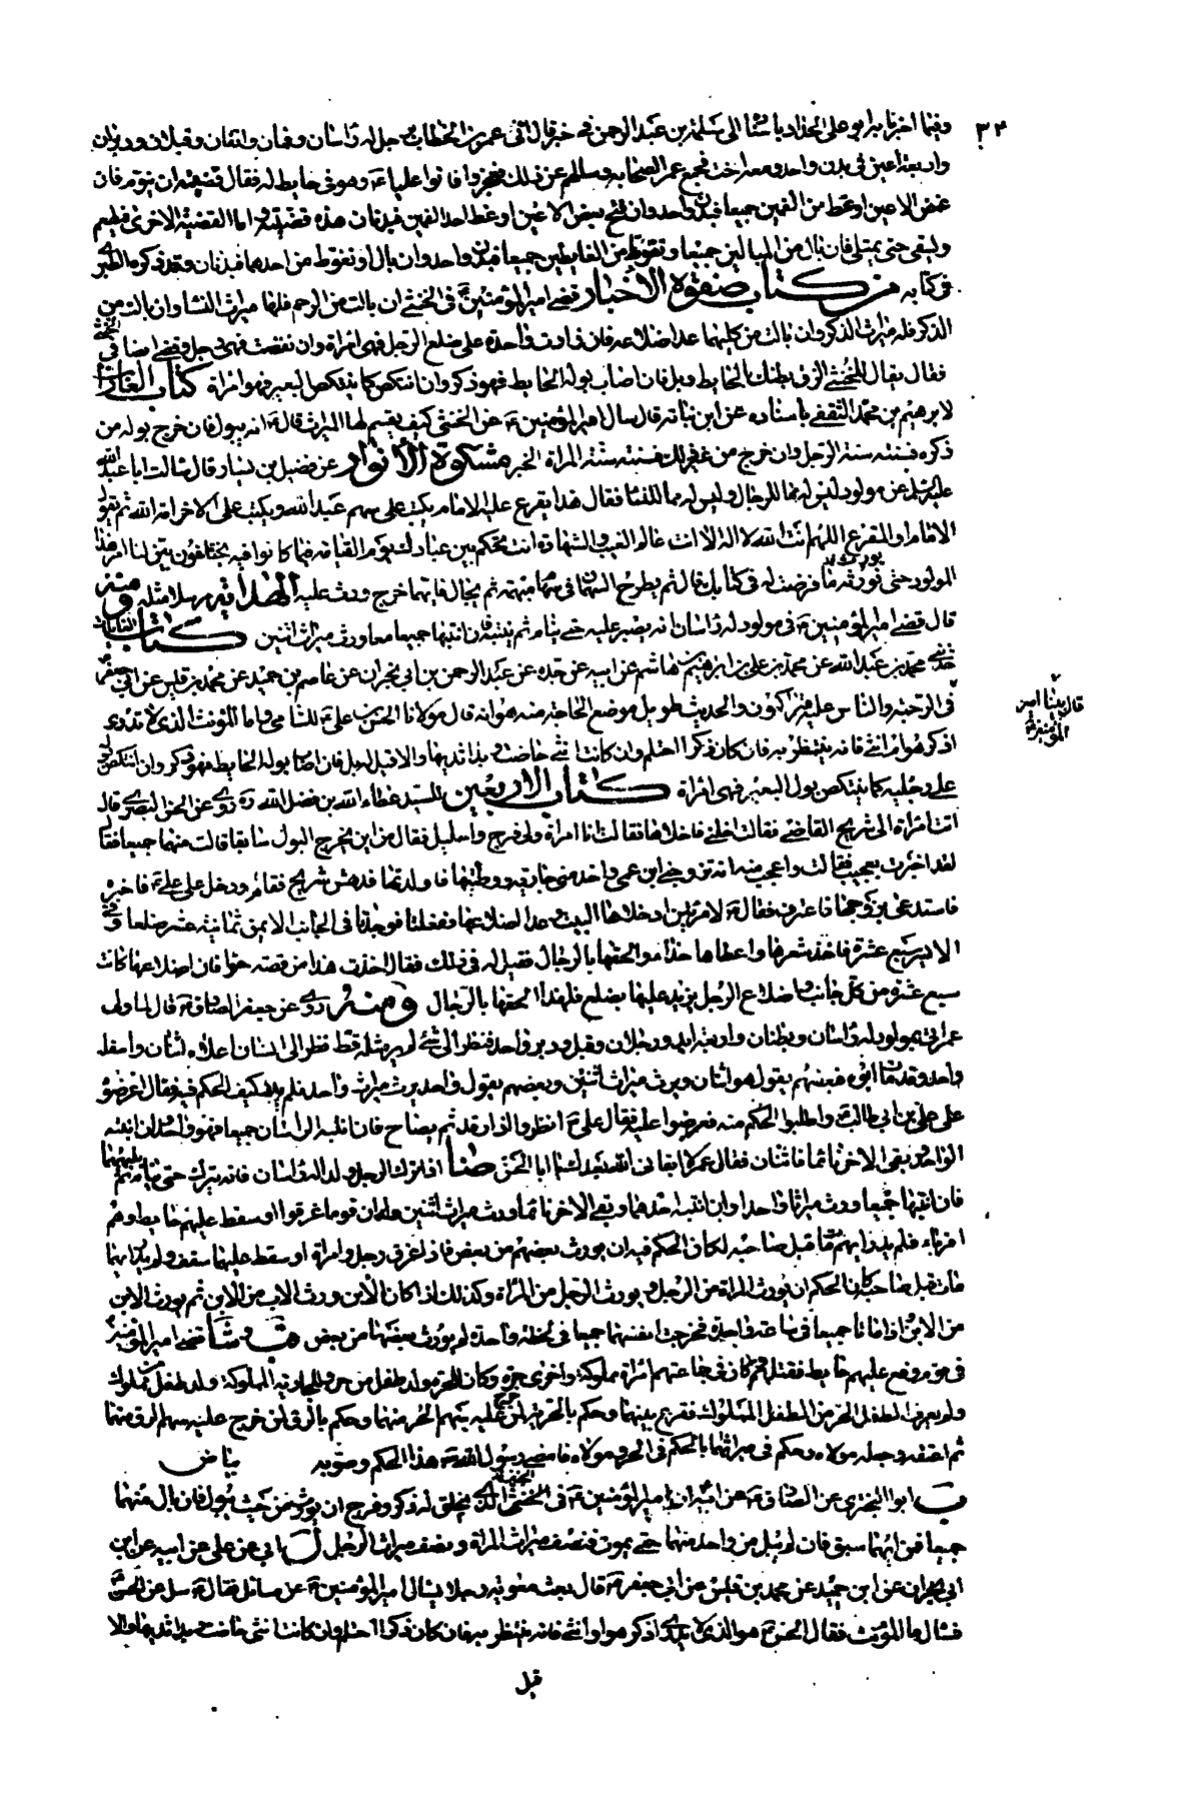 وفيما اخبرنا به ابو على الحداد باسناده الى سلمة بن عبد الرحمن في خبر قال اتى عمر بن الخطاب برجل له رأسان وفمان وانفان وقبلان ودبران
واربعة اعين في بدن واحد ومعه اخت فجمع عمر الصحابة وسالهم عن ذلك فعجزوا فاتوا عليا ع وهو في حايط له فقال قضيته ان ينوم فان
غمض الاعين او غط من الفمين جميعا فبدن واحد وان فتح بعض الاعين او غط احد الفمين فبدنان هذه قضيته واما القضية الاخرى فيطعم
ويسقى حتى يمتلي فان بال من المبالين جميعا وتغوط من الغايطين جميعا فبدن واحد وان بال او تغوط من احدهما فبدنان وقد ذكره الطبري
في كتابه من كتاب صفوة الأخبار قضى امير المؤمنين ع في الخنثى ان بالت من الرحم فلها ميراث النساء وان بالت من
الذكر فله ميراث الذكر وان بالت من كليهما عد اضلاعه فان زادت واحدة على ضلع الرجل فهى امرأة وان نقصت فهى رجل وقضى ايضا في الخنثى
فقال يقال للخنثى الزق بطنك بالحايط وبل فان اصاب بوله الحايط فهو ذكر وان انتكص كما ينتكص البعير فهو امرأة كتاب الغارات
لابرهيم بن محمد الثقفي باسناده عن ابن نباته قال سال امير المؤمنين ع عن الخنثى كيف يقسم لها الميراث قال ع انه يبول فان خرج بوله من
ذكره فسنته سنة الرجل وان خرج من غير ذلك فسنته سنة المراة الخبر مشكوة الأنوار عن فضيل بن يسار قال سالت ابا عبد الله
عليه السلم عن مولود ليس له ما للرجال وليس له ما للنساء فقال هذا يقرع عليه الامام يكتب على سهم عبد الله ويكتب على الاخر امة الله ثم يقول
الامام او المقرع اللهم انت الله لا اله الا انت عالم الغيب والشهادة انت تحكم بين عبادك يوم القيامة فيما كانوا فيه يختلفون بين لنا امر هذا
المولود حتى نورثه ما فرضت له في كتابك قال ثم يطرح السهمان في سهام مبهمة ثم يجال فايهما خرج ورث عليه الهداية مرسلا مثله ومنه
قال قضى امير المؤمنين ع في مولود له رأسان انه يصبر عليه حتى ينام ثم ينبه فان انتبها جميعا معا ورث ميراث اثنين كتاب الغايات
حدثني محمد بن عبد الله عن محمد بن على بن ابرهيم بن هاشم عن ابيه عن جده عن عبد الرحمن بن ابي نجران عن عاصم بن حميد عن محمد بن قيس عن ابي جعفر
قال بينا امير المؤمنين
في الرحبة والناس عليه متراكمون والحديث طويل موضع الحاجة منه هو انه قال مولانا الحسن بن علي ع للشامي واما المؤنث الذي لا تدري
اذكر هو ام انثى فانه ينتظر به فان كان ذكرا احتلم وان كانت انثى حاضت وبدا ثديها والا قيل له بل فان اصاب بوله الحايط فهو ذكر وان انتكص بوله
على رجليه كما ينتكص بول البعير فهى امرأة كتاب الاربعين للسيد عطاء الله بن فضل الله ره روى عن الحسن البصري قال
اتت امرأة الى شريح القاضي فقالت اخلني فاخلاها فقالت انا امرأة ولى فرج واحليل فقال من اين يخرج البول سابقا قالت منهما جميعا فقال
لقد اخبرت بعجيب فقالت واعجب منه انه تزوجني ابن عمى واخدمني جارية فوطئتها فاولدتها فدهش شريح فقام ودخل على على ع فاخبره
فاستدعى بزوجها فاعترف فقال ع لامرأتين ادخلاها البيت وعدا اضلاعها ففعلتا فوجدتا في الجانب الايمن ثمانية عشر ضلعا وفي
الايسر سبع عشرة فاخذ شعرها واعطاها حذاء والحقها بالرجال فقيل له في ذلك فقال اخذت هذا من قصة حوا فان اضلاعها كانت
سبع عشرة من كل جانب واضلاع الرجل يزيد عليها بضلع فلهذا الحقتها بالرجال ومنه روى عن جعفر الصادق ع قال لما ولى
عمر اتى بمولود له رأسان وبطنان واربعة ايد ورجلان وقبل ودبر واحد فنظر الى شئ لم ير مثله قط نظر الى انسان اعلاه اثنان واسفله
واحد وقد مات ابوه فبعضهم يقول هو اثنان ويرث ميراث اثنين وبعضهم يقول واحد يرث ميراث واحد فلم يدر كيف الحكم فيه فقال اعرضوه
على على بن ابي طالب ع واطلبوا الحكم منه فعرضوا عليه فقال على ع انظروا اذا رقد ثم يصاح فان انتبه الرأسان جميعا فهو واحد وان انتبه
الواحد وبقى الاخر نائما فاثنان فقال عمر لا ابقاني الله بعدك يا ابا الحسن ضا اذا ترك الرجل ولدا له رأسان فانه يترك حتى ينام ثم ينبههما
فان انتبها جميعا ورث ميراثا واحدا وان انتبه احدهما وبقى الاخر نائما ورث ميراث اثنين ولو ان قوما غرقوا او سقط عليهم حايط وهم
اقرباء فلم يدر ايهم مات قبل صاحبه لكان الحكم فيه ان يورث بعضهم من بعض فاذا غرق رجل وامرأة او سقط عليهما سقف ولم يدر ايهما
مات قبل صاحبه كان الحكم ان يورث المراة من الرجل ويورث الرجل من المرأة وكذلك اذا كان الأبن ورث الاب من الابن ثم يورث الابن
من الاب واذا ماتا جميعا في ساعة واحدة فخرجت انفسهما جميعا في لحظة واحدة لم يورث بعضهما من بعض شا قضى امير المؤمنين ع
في قوم وقع عليهم حايط فقتلهم وكان في جماعتهم امرأة مملوكة واخرى حرة وكان للحرة ولد طفل من حر وللجارية المملوكة ولد طفل من مملوك
ولم يعرف الطفل الحر من الطفل المملوك فقرع بينهما وحكم بالحرية لمن خرج عليه سهم الحر منهما وحكم بالرق لمن خرج عليه سهم الرق منهما
ثم اعتقه وجعله مولاه وحكم في ميراثهما بالحكم في الحر ومولاه فامضى رسول الله ص هذا الحكم وصوبه بياض
ب ابو البختري عن الصادق ع عن ابيه ان امير المؤمنين ع قضى في الخنثى الذي يخلق له ذكر وفرج ان يورث من حيث يبول فان بال منهما
جميعا فمن ايهما سبق فان لم يبل من واحد منهما حتى يموت فنصف ميراث المراة ونصف ميراث الرجل ل ابي عن على عن ابيه عن ابن
ابي نجران عن ابن حميد عن محمد بن قيس عن ابي جعفر ع قال بعث معوية رجلا يسال امير المؤمنين ع عن مسائل فقال ع سل عن الحسن
فساله ما المؤنث فقال الحسن ع هو الذي لا يدرى اذكر هو او انثى فانه ينتظر به فان كان ذكرا احتلم وان كانت انثى حاضت وبدا ثديها والا
قيل